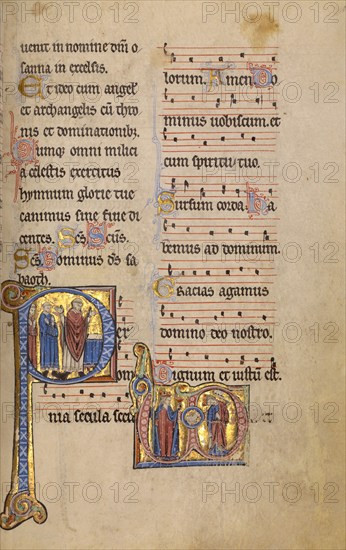 uenit in nomine dñi o
sanna in excelsis.
Et ideo cum angel'
et archangelis cũ thro
nis et dominationibꝫ
Cumqꝫ omni milici
a celestis exercitus
hymnum glorie tue
canimus sine fine di
centes. Sc̃s Sc̃us.
Sc̃s Dominus ds̃ sa
baoth.
Per
om
nia secula secu
lorum Amen Do
minus uobiscum. et
cum spiritu tuo.
Sursum corda. ha
bemus ad dominum.
Gracias agamus
domino deo nostro.
Dignum et iustũ est.
U
PHOTO 12